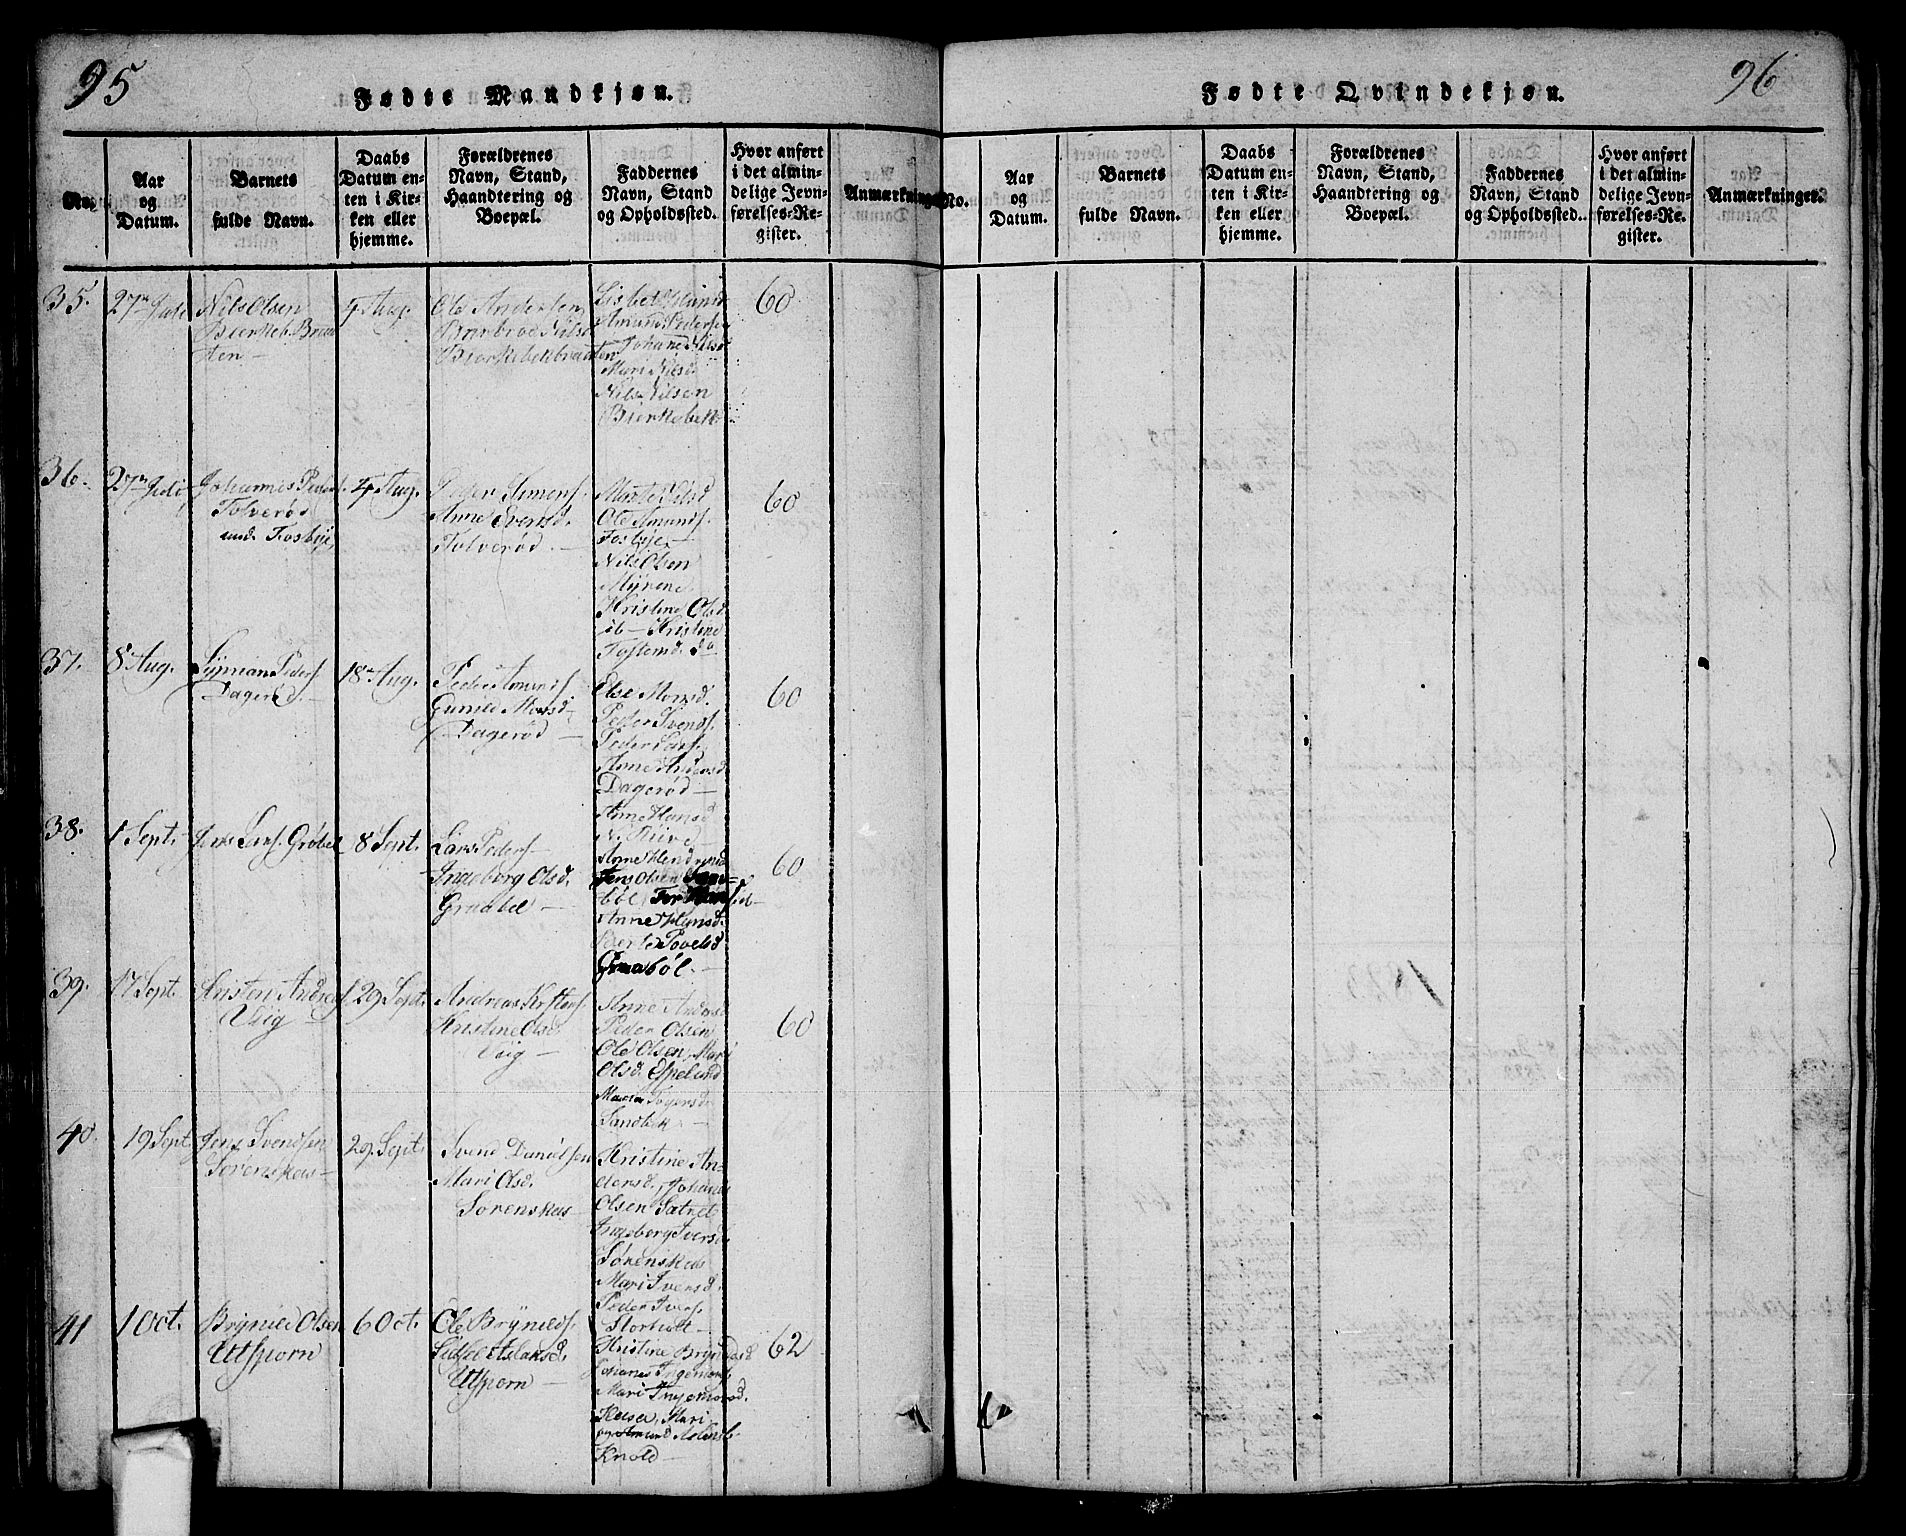 95
Fødte Mandkjøn.
No.
Aar
og
Datum.
Barnets
fulde Navn.
Daabs
Datum en-
ten i Kir-
ken eller
hjemme.
Forældrenes
Navn, Stand,
Haandtering og
Boepæl.
Faddernes
Navn, Stand
og Opholdssted.
Hvor anført
i det almin-
delige Jevn-
førelses-Re-
gister.
Anmærkninger
35.
27de Juli
Nils Olsen
Bierkeb. Braa
ten
4 Aug.
Ole Andersen
Barbroe Nilsd
Bierkebekbraaten
Lisbet Hansd
Amund Pedersen
Johane Nilsd
Mari Nilsd.
Nils Nilsen
Bierkebek.
60
36.
27de Juli
Johannes Peders.
Tolverød
und. Fosbye
4 Aug.
Peder Simens.
Anne Svensd.
Tolverød.
Marte Nilsd
Ole Amunds.
Fosbye
Nils Olsen
Myrene
Kristine Olsd
ib Kristine
Tostensd. do
60
37.
8 Aug.
Syman Peders
Dagerød.
18de Aug.
Peder Amunds.
Gunild Monsd
Dagerød
Else Monsd.
Peder Svends.
Peder Lars.
Anne Andersd
Dagerød
60
38.
1 Sept.
Jens Lars. Grøbel
8 Sept.
Lars Peders.
Ingeborg Olsd.
Graabel
Anne Hansd
N. Riive
Anne Hendriksd
Jens Olsen
Anne Hansd.
Povelsd
Graabøl.
60
39.
17 Sept.
Kristen Andreas.
Viig
29 Sept.
Andreas Kristens.
Kristine Olsd.
Viig
Anne Andersd
Peder Olsen
Ole Olsen, Mari
Olsd. Espelund
Maria Torgersd.
Sandbek
60
40.
19 Sept.
Jens Svendsen
Sørenskaas
29. Sept.
Svend Danielsen
Mari Olsd.
Sørenskas
Kristine An-
dersd., Johanes
Olsen Satrel
Ingeborg Iversd.
Sørenskas
Mari Iversd.
Peder Ivers.
Storholt
41
1 Oct.
Brynild Olsen
Utsporn
6 Oct.
Ole Brynilds.
Sidsel Aslaksd.
Utsporn
Kristine Brynildsd
Johanes Ingemors.
Mari Ingemorsd.
Mari
Knold
62
96
Fødte Qvindekjøn.
No.
Aar
og
Datum.
Barnets
fulde Navn.
Daabs
Datum en-
ten i Kir-
ken eller
hjemme.
Forældrenes
Navn, Stand,
Haandtering og
Boepæl.
Faddernes
Navn, Stand
og Opholdssted.
Hvor anført
i det almin-
delige Jevn-
førelses-Re-
gister.
Anmærkninger.